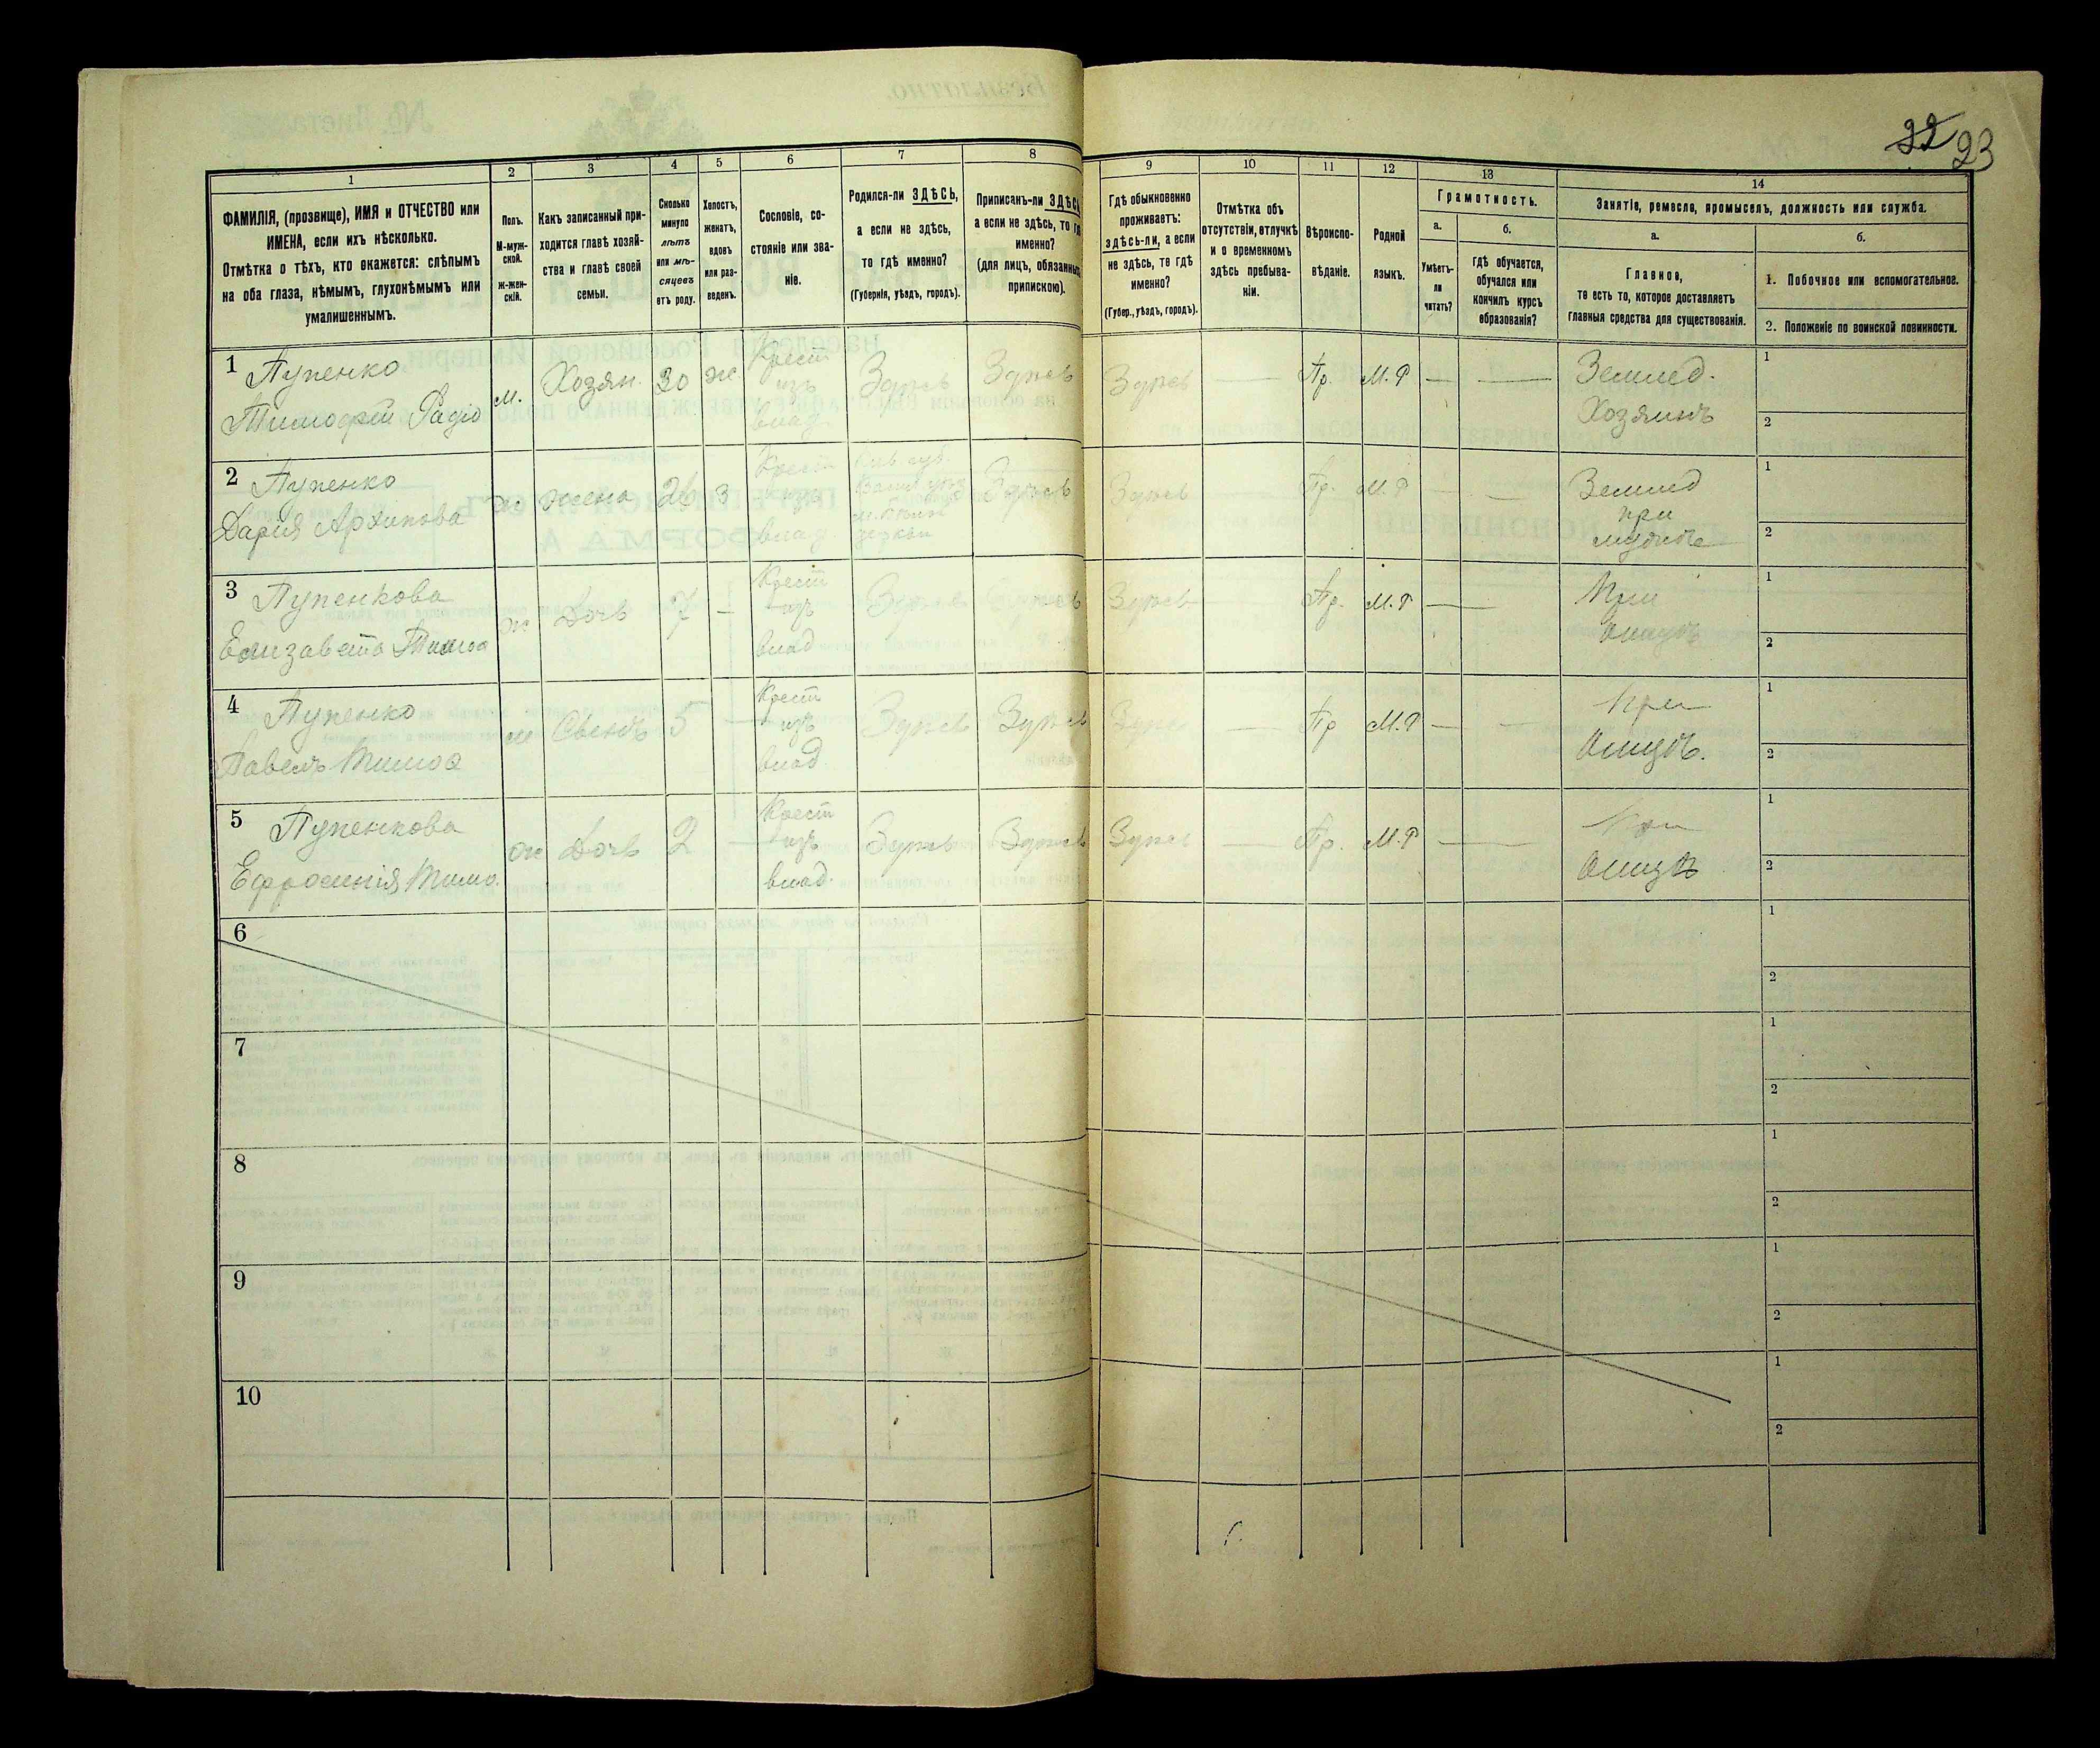 22 23
1
ФАМИЛІЯ, (прозвище), ИМЯ и ОТЧЕСТВО или
ИМЕНА, если ихъ нѣсколько.
Отмѣтка о тѣхъ, кто окажется: слѣпымъ
на оба глаза, нѣмымъ, глухонѣмымъ или
умалишеннымъ.
2
Полъ.
М-муж-
ской.
ж-жен-
скій.
3
Какъ записанный при-
ходится главѣ хозяй-
ства и главѣ своей
семьи.
4
Сколько
минуло
лѣтъ
или мѣ-
сяцевъ
отъ роду.
5
Холостъ,
женатъ,
вдовъ
или раз-
веденъ.
6
Сословіе, со-
стояніе или зва-
ніе.
7
Родился-ли ЗДѢСЬ,
а если не здѣсь,
то гдѣ именно?
(Губернія, уѣздъ, городъ).
8
Приписанъ-ли ЗДѢСЬ
а если не здѣсь, то гдѣ
именно?
(для лицъ, обязанныхъ
припискою).
9
Гдѣ обыкновенно
проживаетъ:
здѣсь-ли, а если
не здѣсь, то гдѣ
именно?
(Губер., уѣздъ, городъ).
10
Отмѣтка объ
отсутствіи, отлучкѣ
и о временномъ
здѣсь пребыва-
ніи.
11
Вѣроиспо-
вѣданіе.
12
Родной
языкъ.
13
Грамотность.
а.
Умѣетъ-
ли
читать?
б.
гдѣ обучается,
обучался или
кончилъ курсъ
образованія?
14
Занятіе, ремесло, промыселъ, должность или служба.
а.
Главное,
то есть то, которое доставляетъ
главныя средства для существованія.
б.
1. Побочное или вспомогательное.
2. Положеніе по воинской повинности.
1 Пупенко
Тимофей Радіо
м. Хозян. 30 ж.
Крест
изъ
влад.
Здѣсь Здѣсь Здѣсь — Пр. М. Р — —
Землед.
Хозяинъ
1
2
2 Пупенко
Дарія Архипова
ж жена 26 з
Крест
изъ
влад.
Кіев губ.
Здѣсь Здѣсь Пр. М. Р — —
Землед
при
мужѣ
1
2
3 Пупенкова
Елизавета Тимоѳ
ж Дочь 7 —
Крест
изъ
влад
Здѣсь Здѣсь Здѣсь — Пр. М. Р —
При
Отцѣ
1
2
4 Пупенко
Павелъ Тимоѳ
м Сынъ 5 —
Крест
изъ
влад.
Здѣсь Здѣсь Здѣсь — Пр М. Р — —
При
Отцѣ.
1
2
5 Пупенкова
Ефросинія Тимо.
ж Дочь 2 —
Крест
изъ
влад.
Здѣсь Здѣсь Здѣсь — Пр. М. Р —
При
Отцѣ
1
2
6
1
2
7
1
2
8
1
2
9
1
2
10
1
2